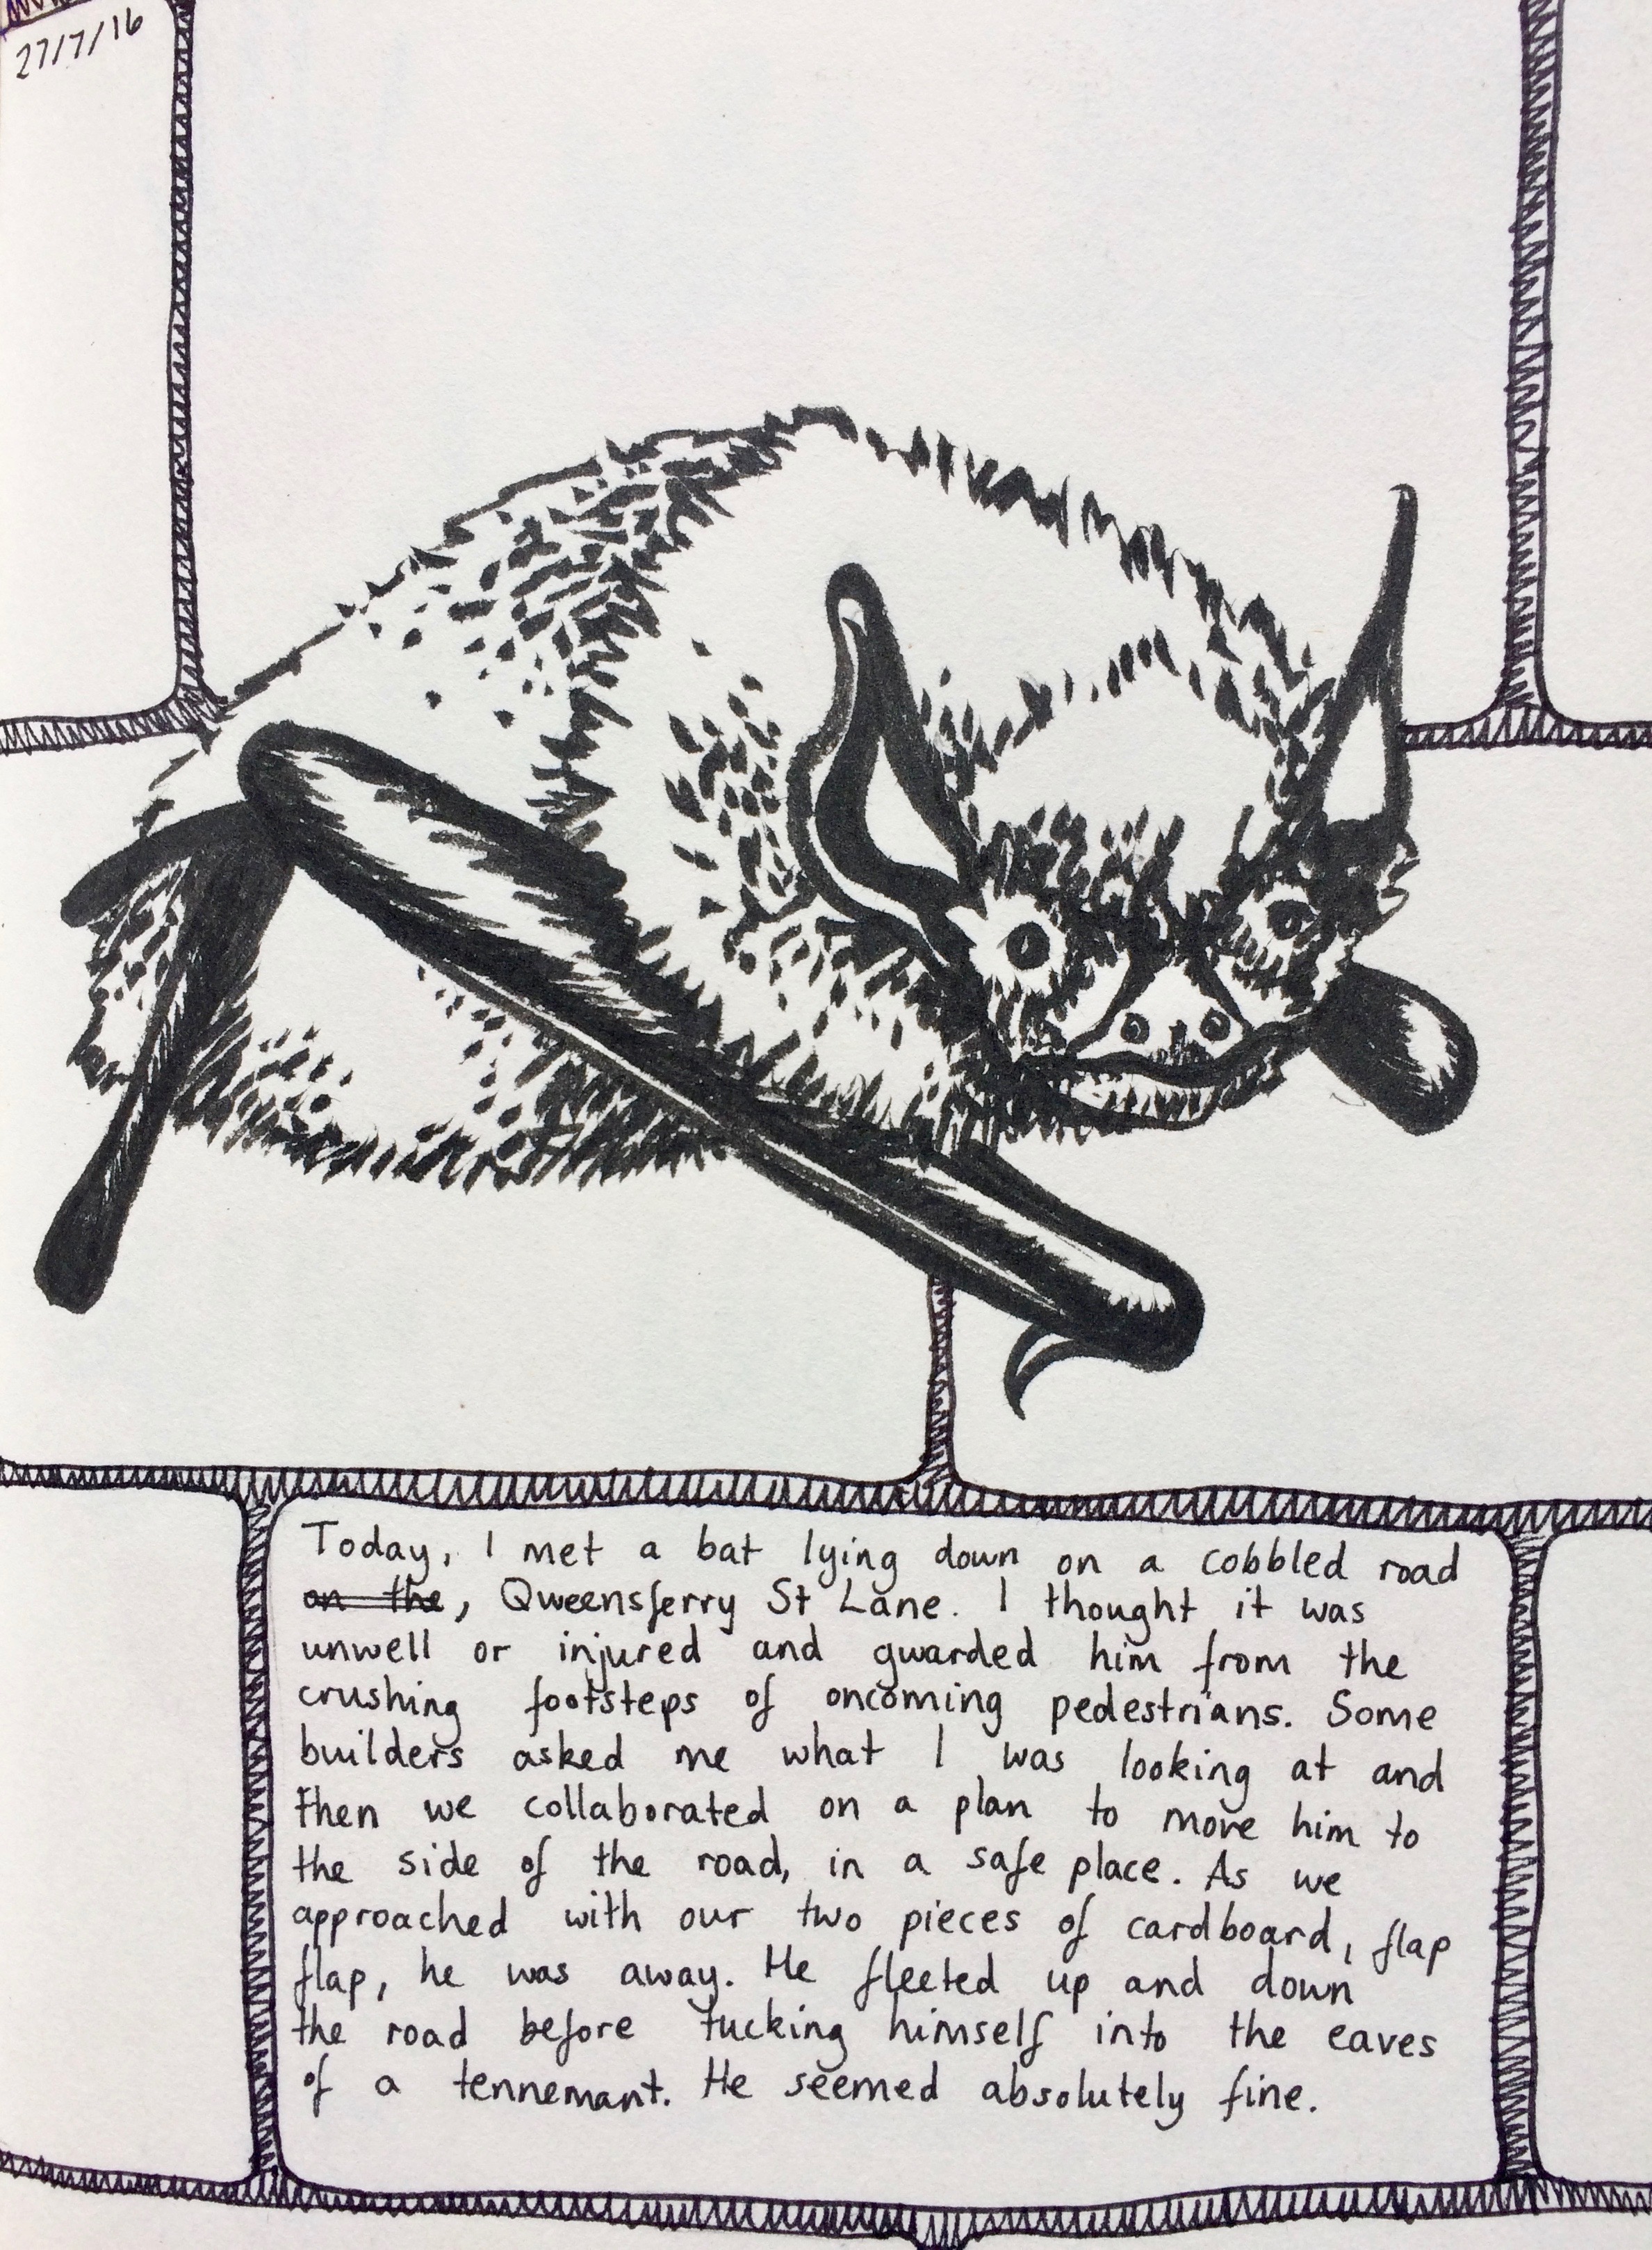 27/7/16
Today, I met a bat lying down on a cobbled road
on the, Queensferry St Lane. I thought it was
unwell or injured and guarded him from the
crushing footsteps of oncoming pedestrians. Some
builders asked me what I was looking at and
then we collaborated on a plan to move him to
the side of the road, in a safe place. As we
approached with our two pieces of cardboard, flap
flap, he was away. He fleeted up and down
the road before tucking himself into the eaves
of a tennemant. He seemed absolutely fine.